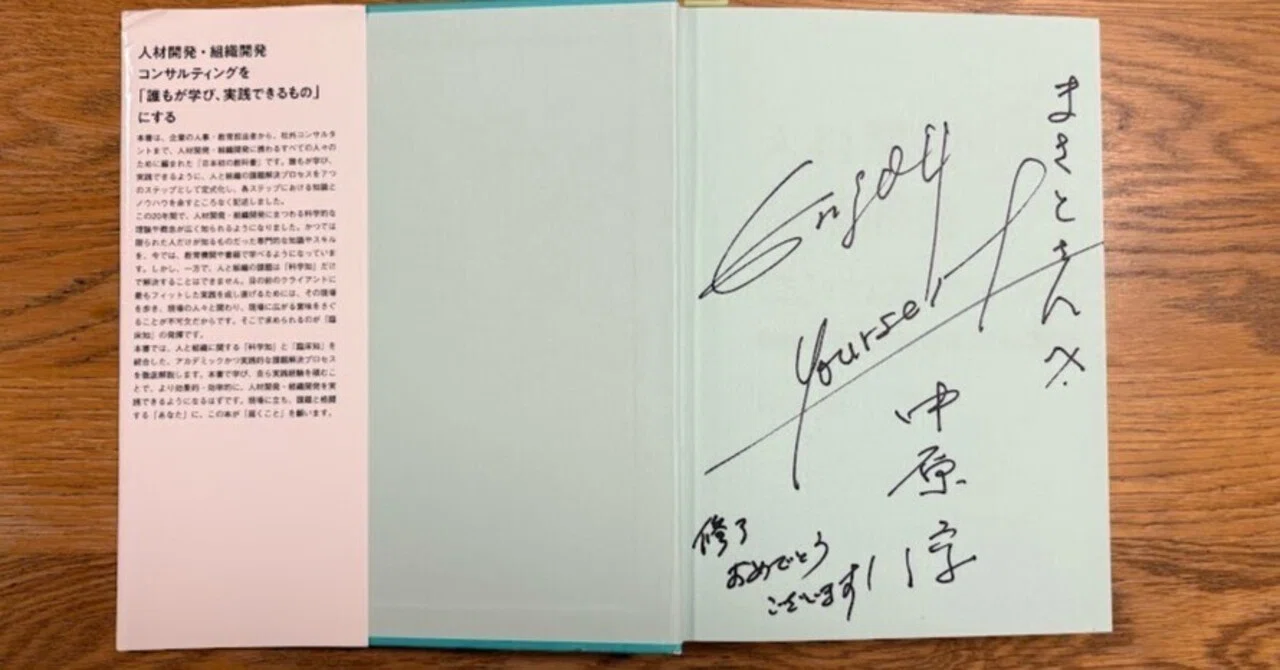 人材開発・組織開発
コンサルティングを
「誰もが学び、実践できるもの」
にする
本書は、企業の人事・教育担当者から、社外コンサルタ
ントまで、人材開発・組織開発に携わるすべての人々の
ために編まれた「日本初の教科書」です。誰もが学び、
実践できるように、人と組織の課題解決プロセスを7つ
のステップとして定式化し、各ステップにおける知識と
ノウハウを余すところなく記述しました。
この20年間で、人材開発・組織開発にまつわる科学的な
理論や概念が広く知られるようになりました。かつては
限られた人だけが知るものだった専門的な知識やスキル
を、今では、教育機関や書籍で学べるようになっていま
す。しかし、一方で、人と組織の課題は「科学知」だけ
で解決することはできません。目の前のクライアントに
最もフィットした実践を成し遂げるためには、その現場
を歩き、現場の人々と関わり、現場に広がる意味をさぐ
ることが不可欠だからです。そこで求められるのが「臨
床知」の発揮です。
本書では、人と組織に関する「科学知」と「臨床知」を
統合した、アカデミックかつ実践的な課題解決プロセス
を徹底解説します。本書で学び、自ら実践経験を積むこ
とで、より効果的・効率的に、人材開発・組織開発を実
践できるようになるはずです。現場に立ち、課題と格闘
する「あなた」に、この本が「届くこと」を願います。
まさとさんへ
Enjoy
Yourself
中原淳
修了
おめでとう
ございます!